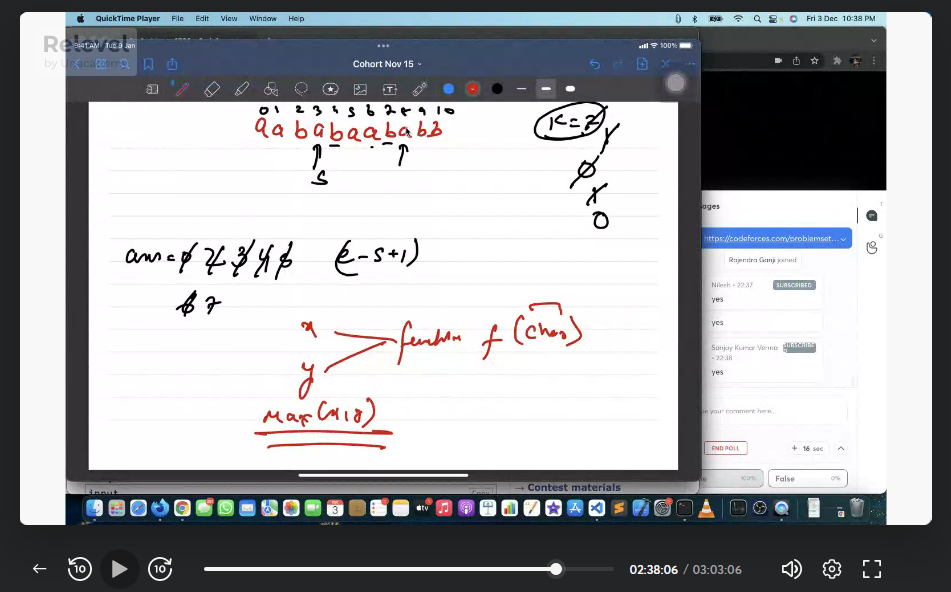 QuickTime Player File Edit View Window Help Fri 3 Dec 10:38 PM
Relevel
by Unacademy
9:41 AM Tue 9 Jan 100%
Cohort Nov 15
0 1 2 3 4 5 6 7 8 9 10
a a b a b a a b a b b
K=2
1
0
1
0
S
ans = 0 2 3 4 5 (e-s+1)
6 7
x
function f (char)
y
Max(x,y)
ages
https://codeforces.com/problemset...
Rajendra Ganji joined
Nilesh • 22:37 SUBSCRIBED
yes
yes
Sanjay Kumar Verma SUBSCRIBED
• 22:38
yes
your comment here...
END POLL + 16 sec
100% False 0%
input
→ Contest materials
10 10 02:38:06 / 03:03:06